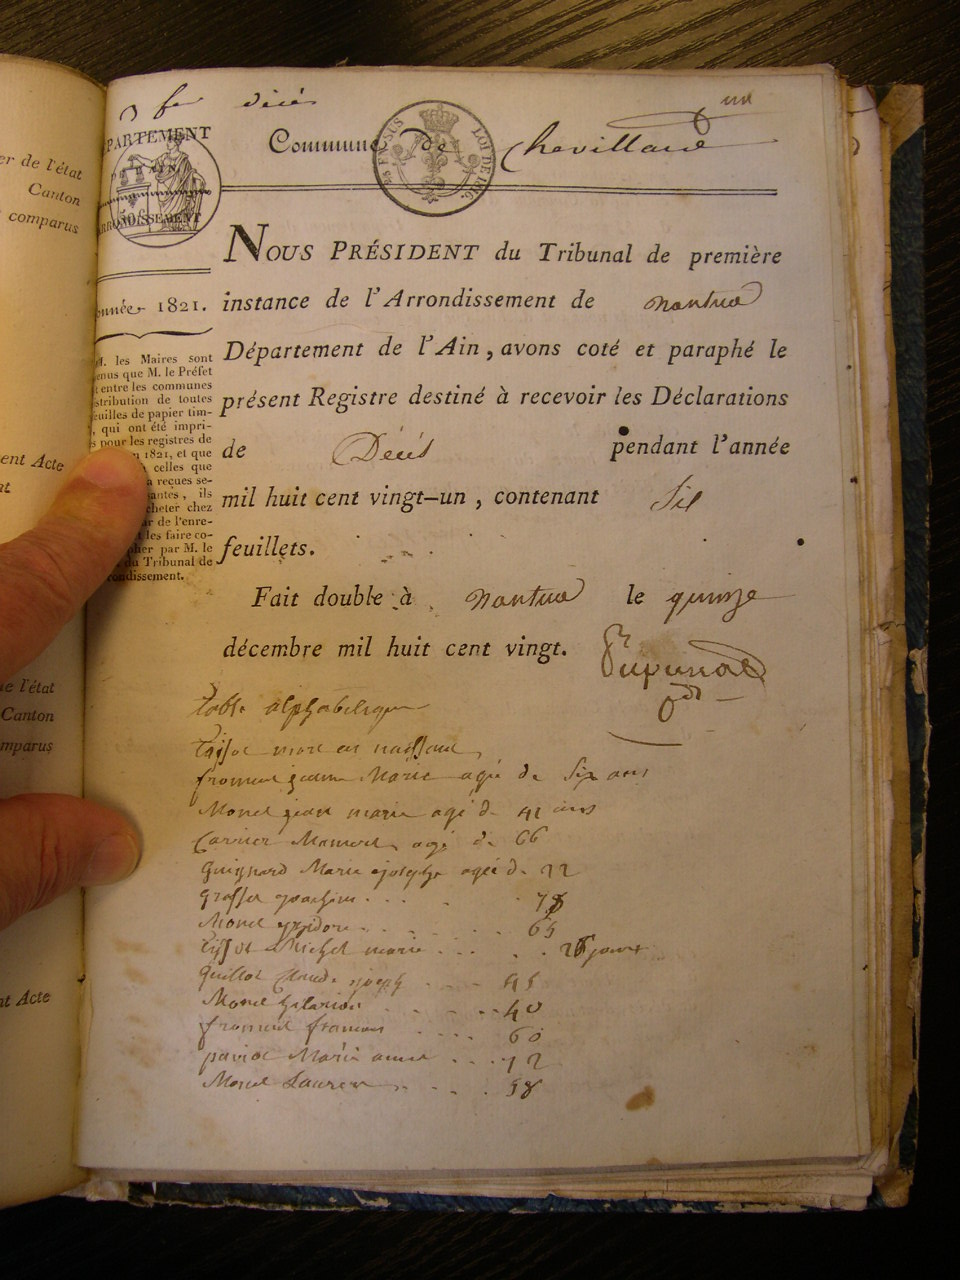 décés
Commune de Chevillard
DÉPARTEMENT
DE L'AIN
ARRONDISSEMENT
25 EN SUS LOI DE 1816.
Année 1821.
M. les Maires sont
venus que M. le Préfet
entre les communes
distribution de toutes
feuilles de papier tim-
qui ont été impri-
pour les registres de
1821, et que
celles que
reçues se-
ils
cheter chez
de l'enre-
les faire co-
par M. le
du Tribunal de
rondissement.
NOUS PRÉSIDENT du Tribunal de première
instance de l'Arrondissement de nantua
Département de l'Ain, avons coté et paraphé le
présent Registre destiné à recevoir les Déclarations
de Décés pendant l'année
mil huit cent vingt-un, contenant Six
feuillets.
Fait double à nantua le quinze
décembre mil huit cent vingt.
table alphabetique
tissot mort en naissant
froment jeanne Marie agée de Six ans
Monet jean marie agé de 41 ans
Carrier agé de 66
guignard Marie josephe agée de 22
grosset joachim 78
Monet 65
tissot Michel marie jours
guillot Claude joseph 45
Monet hilarion 40
froment francois 60
paviot Marie anne 72
Monet Laurent 58
er de l'état
Canton
comparus
ent Acte
at
ue l'état
Canton
omparus
nt Acte